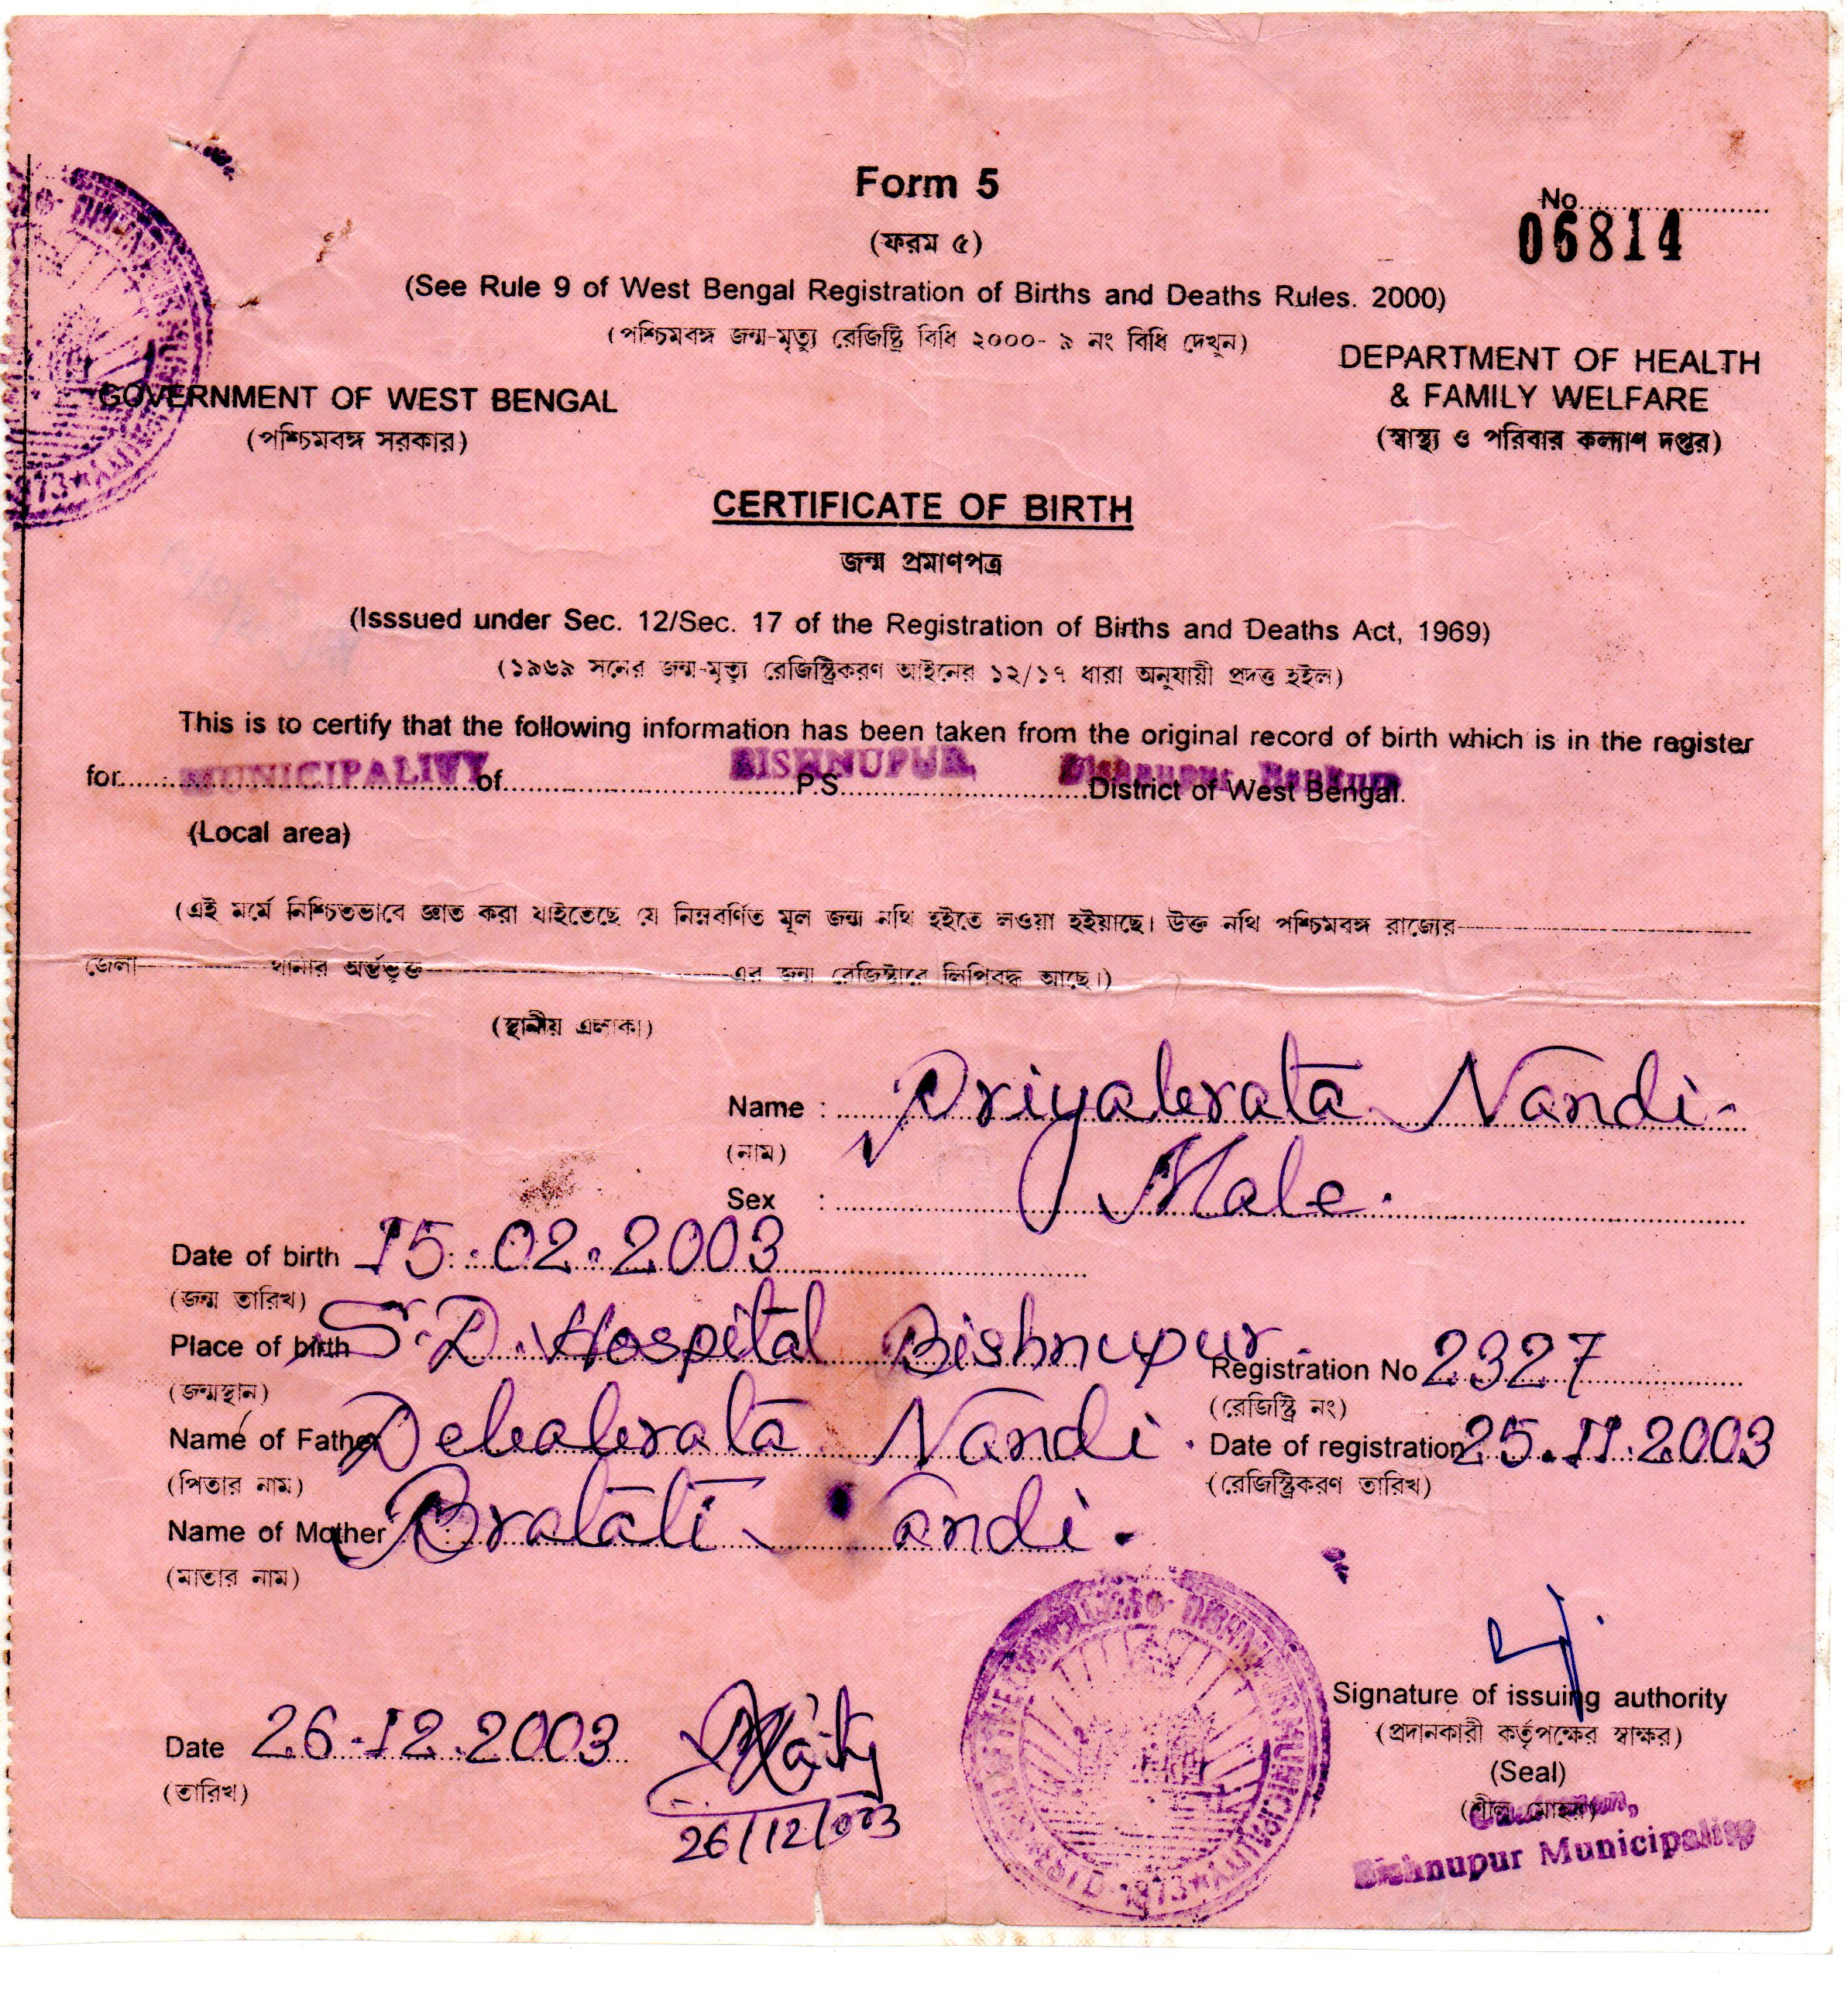 Form 5
No.
06814
(ফরম ৫)
(See Rule 9 of West Bengal Registration of Births and Deaths Rules. 2000)
(পশ্চিমবঙ্গ জন্ম-মৃত্যু রেজিষ্ট্রি বিধি ২০০০- ৯ নং বিধি দেখুন)
GOVERNMENT OF WEST BENGAL
(পশ্চিমবঙ্গ সরকার)
DEPARTMENT OF HEALTH
& FAMILY WELFARE
(স্বাস্থ্য ও পরিবার কল্যাণ দপ্তর)
CERTIFICATE OF BIRTH
জন্ম প্রমাণপত্র
(Isssued under Sec. 12/Sec. 17 of the Registration of Births and Deaths Act, 1969)
(১৯৬৯ সনের জন্ম-মৃত্যু রেজিস্ট্রিকরণ আইনের ১২/১৭ ধারা অনুযায়ী প্রদত্ত হইল)
This is to certify that the following information has been taken from the original record of birth which is in the register
for MUNICIPALITY of BISHNUPUR P.S. Bishnupur, Bankura District of West Bengal.
(Local area)
(এই মর্মে নিশ্চিতভাবে জ্ঞাত করা যাইতেছে যে নিম্নবর্ণিত মূল জন্ম নথি হইতে লওয়া হইয়াছে। উক্ত নথি পশ্চিমবঙ্গ রাজ্যের
জেলা থানার অর্ন্তভূক্ত এর জন্ম রেজিষ্টারে লিপিবদ্ধ আছে।)
(স্থানীয় এলাকা)
Name : Priyabrata Nandi
(নাম)
Sex : Male.
Date of birth 15.02.2003
(জন্ম তারিখ)
Place of birth S.D. Hospital Bishnupur
(জন্মস্থান)
Registration No 2327
(রেজিস্ট্রি নং)
Name of Father Debabrata Nandi.
(পিতার নাম)
Date of registration 25.11.2003
(রেজিস্ট্রিকরণ তারিখ)
Name of Mother Bratati Nandi.
(মাতার নাম)
Signature of issuing authority
(প্রদানকারী কর্তৃপক্ষের স্বাক্ষর)
(Seal)
(শীল মোহর)
Chairman,
Bishnupur Municipality
Date 26.12.2003
(তারিখ)
26/12/003